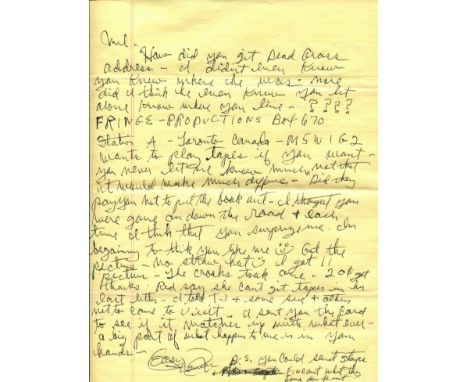 How did you get Dead Cross
address - I didn't even know
you knew where she was - nor
did I think she even knew you let
alone know where you live - ????
FRINGE - PRODUCTIONS BOX 670
Station A - Toronto Canada - M5W1G2
wants to play tapes if you want -
you never let me know much, not that
it would make much - Did they
pay you not to put the book out - I thought you
were gone on down the road & each
time I think that you surprize me. Im
begining to think you like me Got the
picture - no straw hat I got 11
picture - The crooks took one - 2 of
thanks. Red say she can't get tapes in in
last letter - I told + some &
not to come to visit - I sent you the card
to see if it matches up with what ever -
a big part of what happen to me is in your
hands -
P.S. you could send tapes
Find out what they